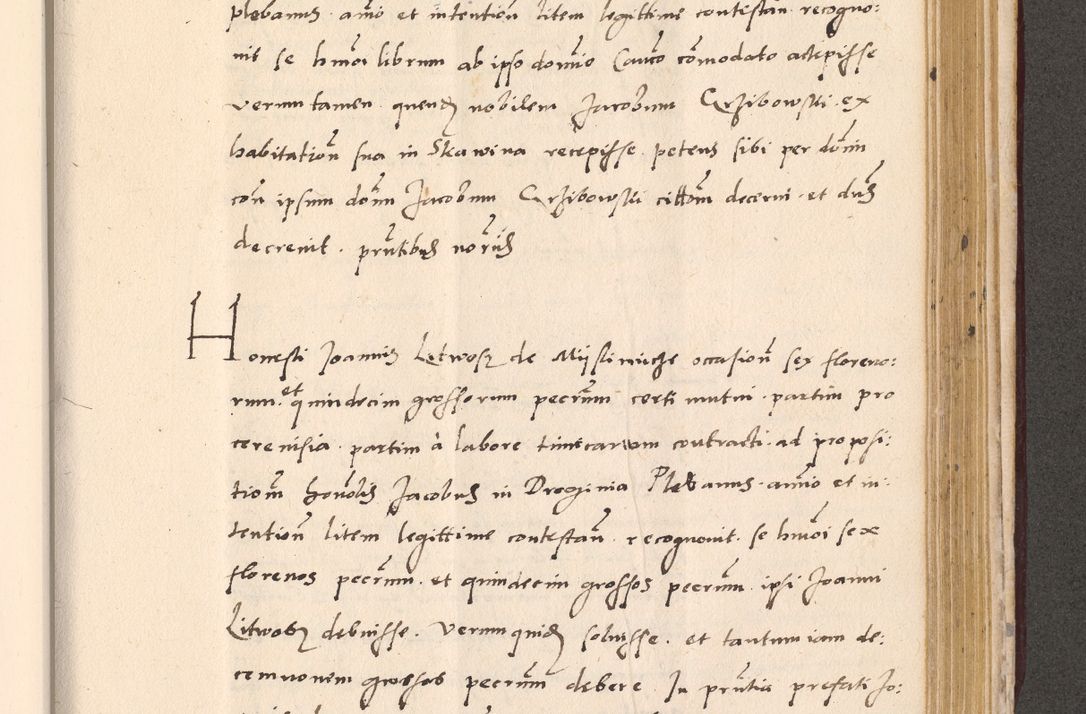 plebanus animo et intention litem legittime contestan recogno:
uit se hmoi librum ab ipso domino Cauco commodato accepisse
verum tamen quendam nobilem Jacobum Grzibowski ex
habitation sua in Skawina recepisse petens sibi per domin
con ipsum domn Jacobum Grzibowski cittom decerni et dns
decreuit prntibus norys
Honesti Joannis Litwosz de Mijslimicze occasion sex floreno:
rum et quindecim grossorum pecrum certi mutui partim pro
cereuisia partim a labore tunicarum contracti ad proposi:
tiom honolis Jacobus in Droginia Plebanus animo et in:
tention litem legittime contestan recognouit se hmoi sex
florenos pecrum et quindecim grossos pecrum ipsi Joanni
Litwosz debuisse verum quidem soluisse et tantum iam de:
cemnouem grossos pecrum debere In prntia prefati Jo: